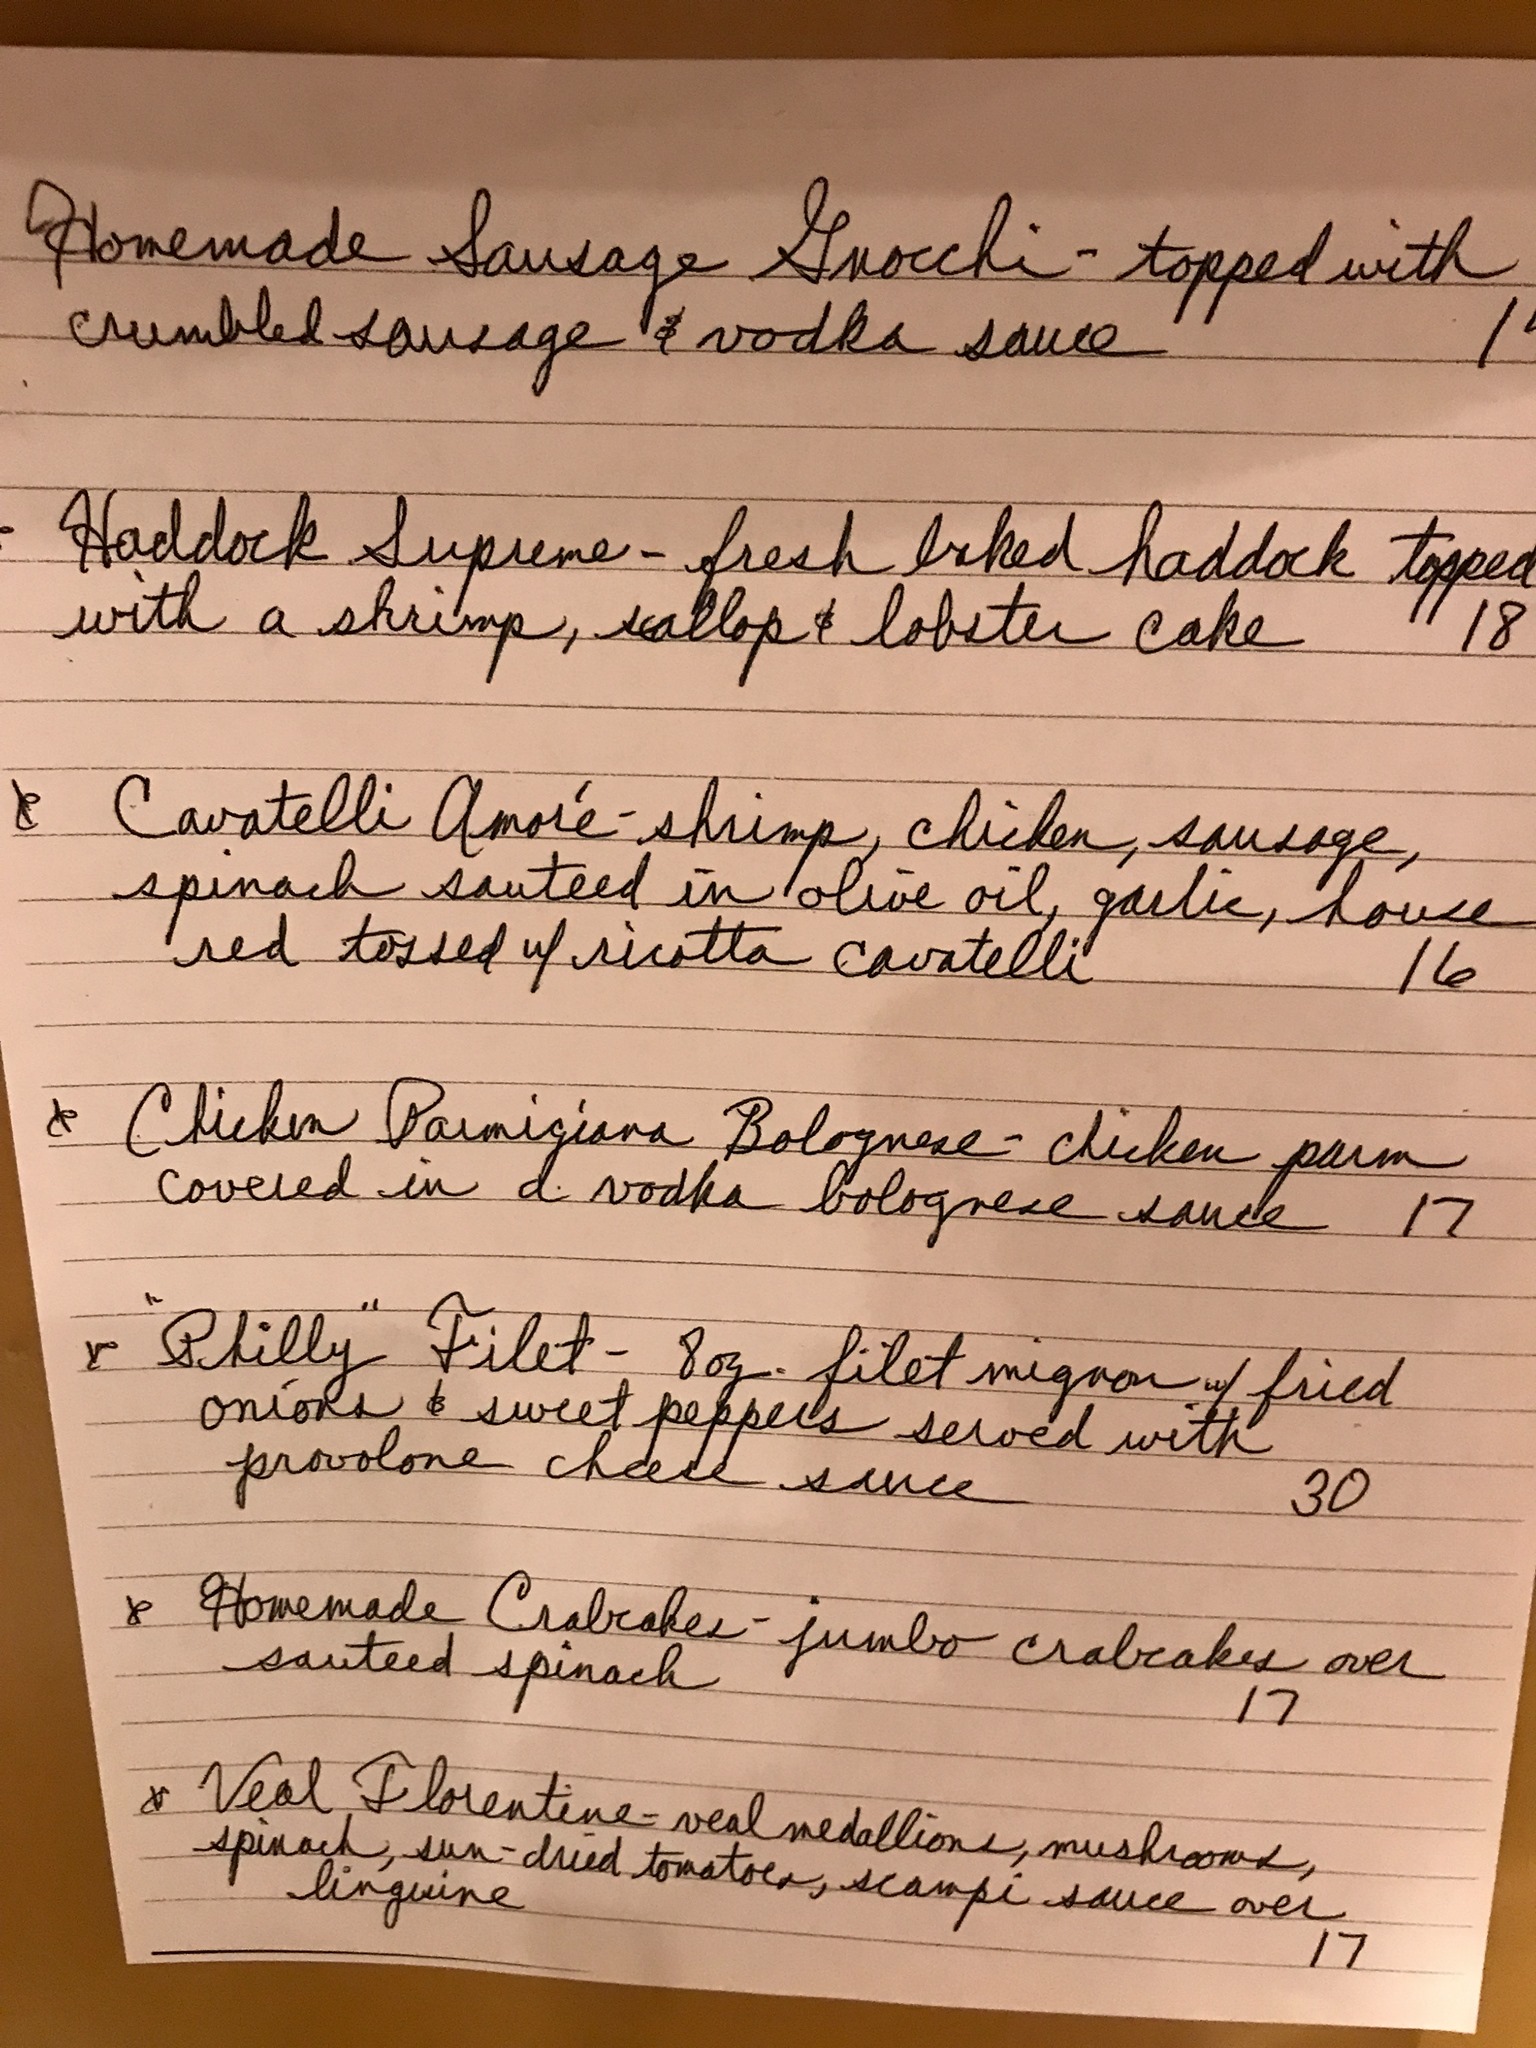 Homemade Sausage Gnocchi - topped with
crumbled sausage & vodka sauce
Haddock Supreme - fresh baked haddock topped
with a shrimp, scallop & lobster cake 18
* Cavatelli Amoré - shrimp, chicken, sausage,
spinach sauteed in olive oil, garlic, house
red tossed w/ ricotta cavatelli 16
* Chicken Parmigiana Bolognese - chicken parm
covered in a vodka bolognese sauce 17
* "Philly" Filet - 8oz. filet mignon w/ fried
onions & sweet peppers served with
provolone cheese sauce 30
* Homemade Crabcakes - jumbo crabcakes over
sauteed spinach 17
* Veal Florentine - veal medallions, mushrooms,
spinach, sun-dried tomatoes, scampi sauce over
linguine 17